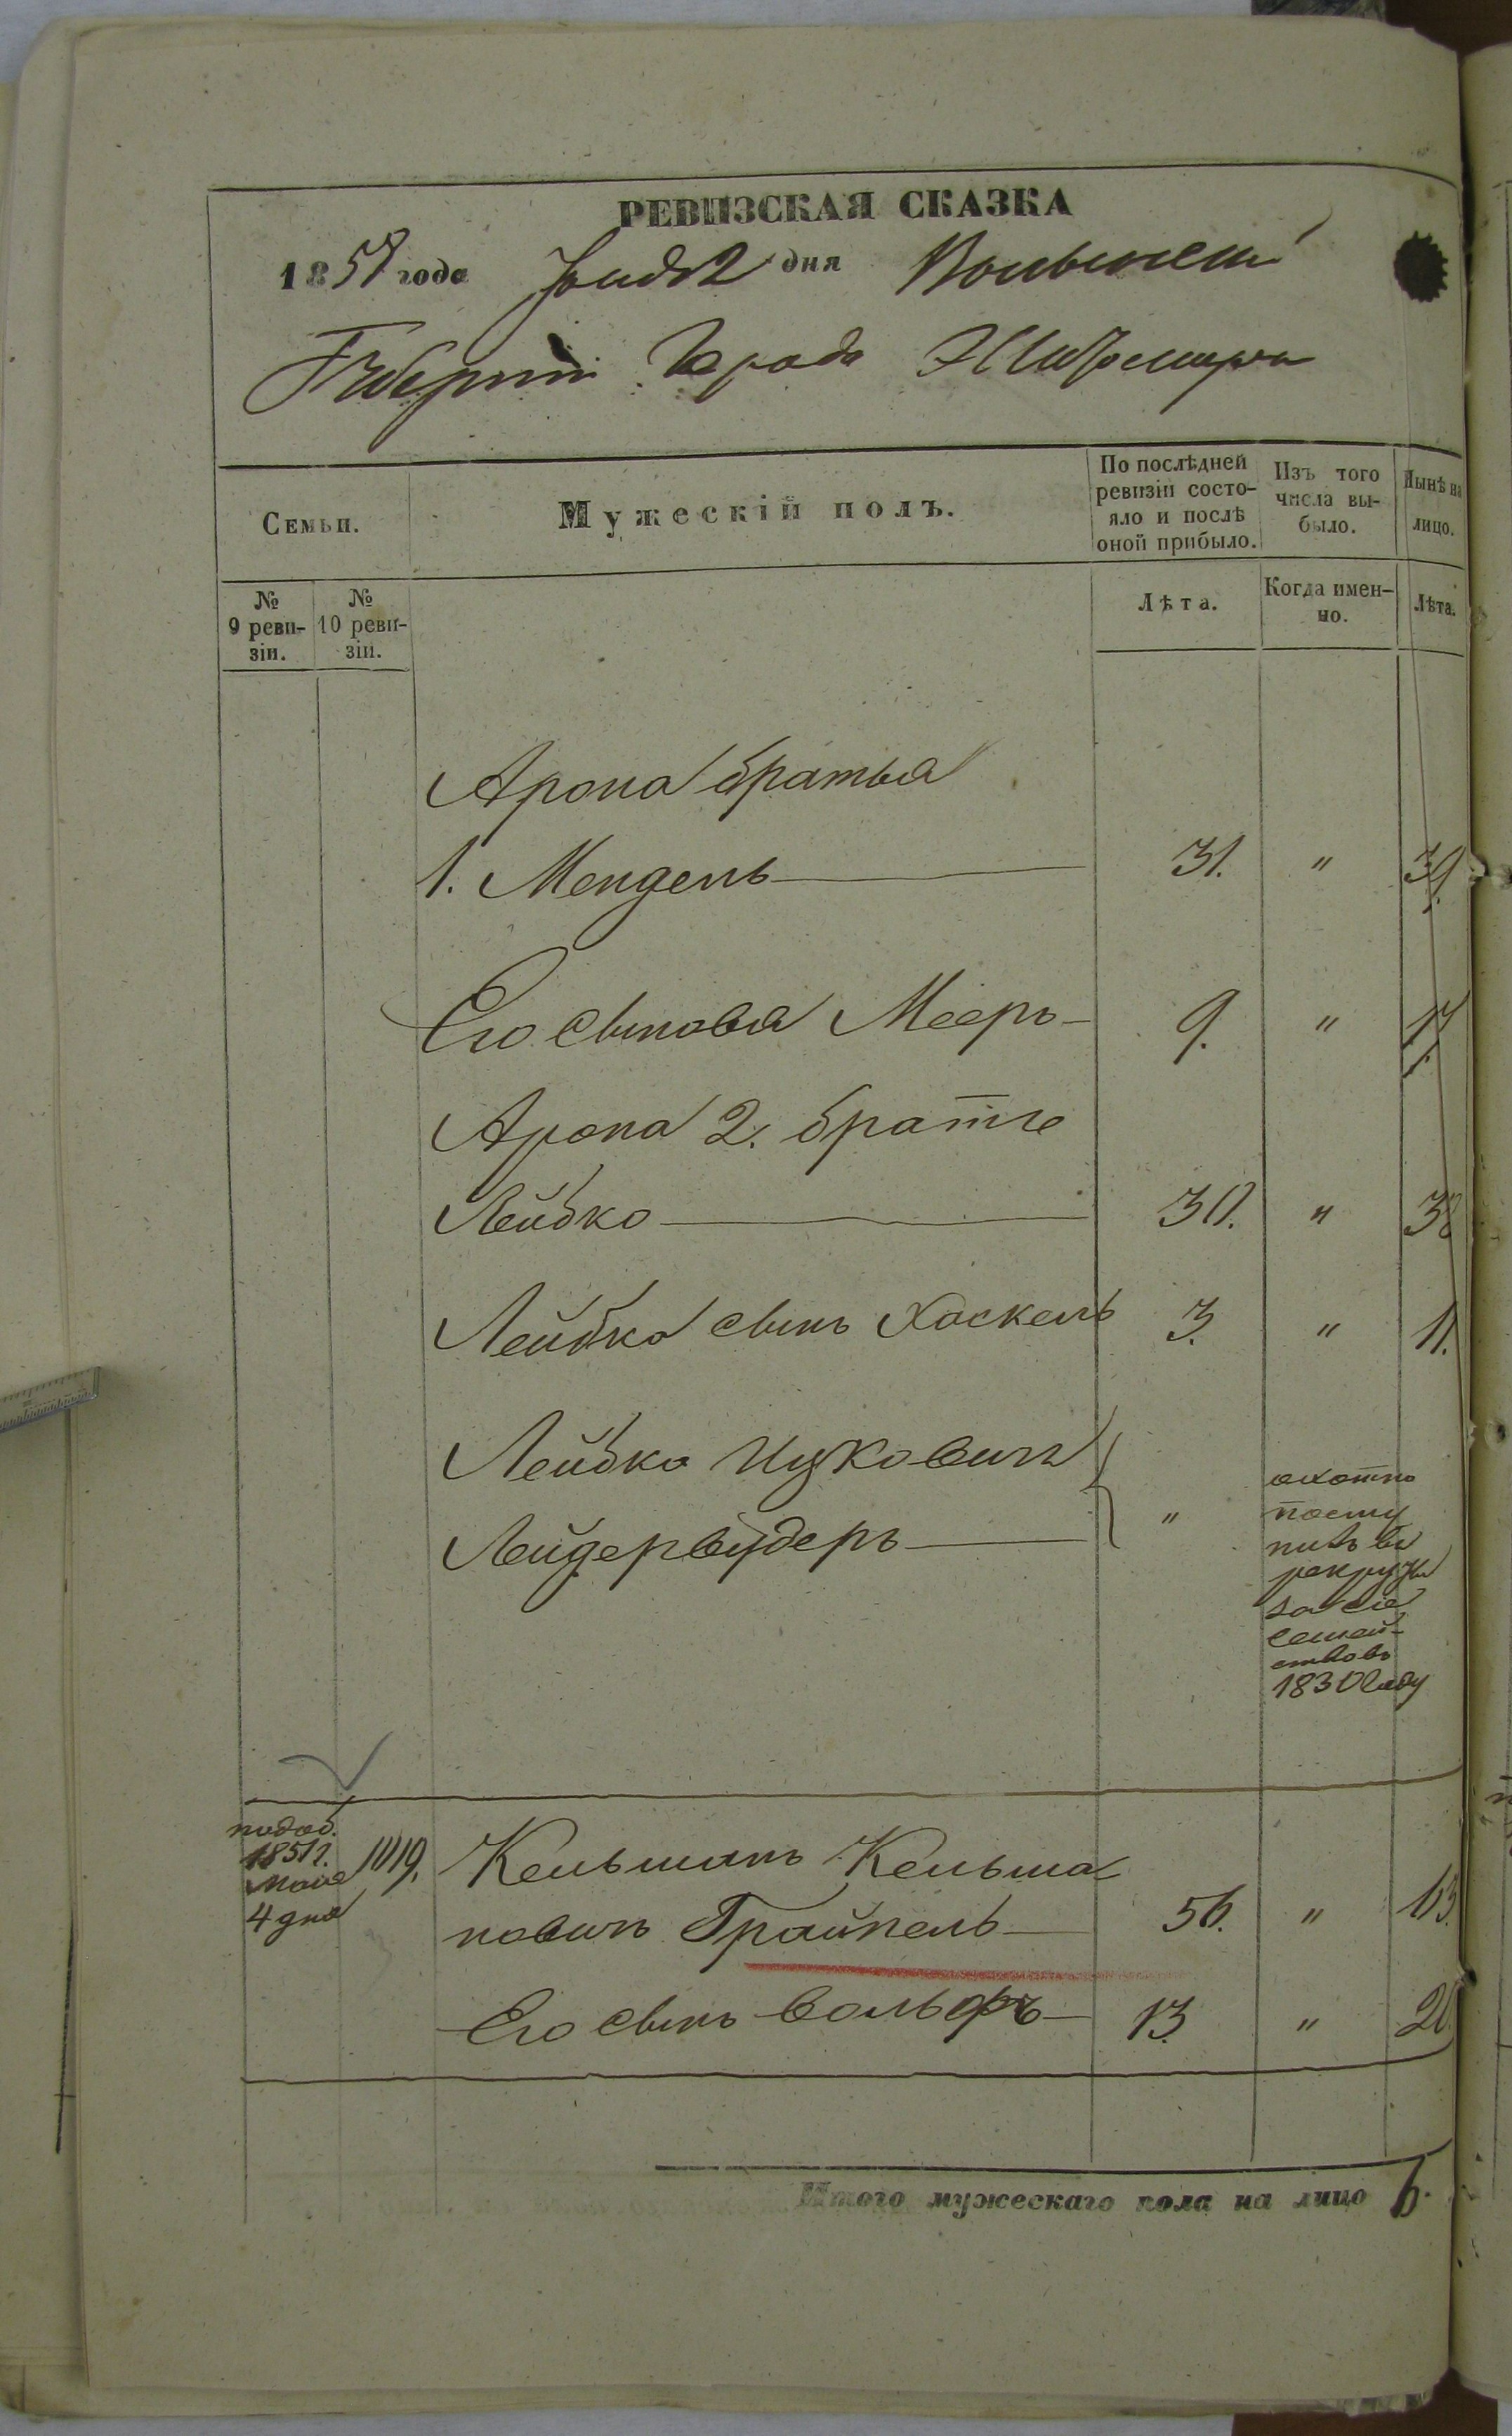 РЕВИЗСКАЯ СКАЗКА
1858 года дня Волынской
Губернии Города Житомира
Семьи.
Мужескій полъ.
По послѣдней ревизіи состо-
яло и послѣ
оной прибыло.
Изъ того
числа вы-
было.
Нынѣ на
лицо.
№
9 реви-
зіи.
№
10 реви-
зіи.
Лѣта.
Когда имен-
но.
Лѣта.
Арона братья
1. Мендель 31. " 39.
Его сынова Мееръ 9. " 17.
Арона 2. братъ
Лейбко 30. " 38
Лейбка сынъ Хаскель 3. " 11.
Лейбка Ицковичъ
Лейдервудеръ "
охотно
посту
пилъ въ
рекруты
за сіе
семей-
ство въ
1830 году
1851г.
мая
4 дня
1019.
Кельманъ Кельма
новичъ Грайпель 56. " 63.
Его сынъ Вольфъ 13. " 20.
Итого мужескаго пола на лицо 6.